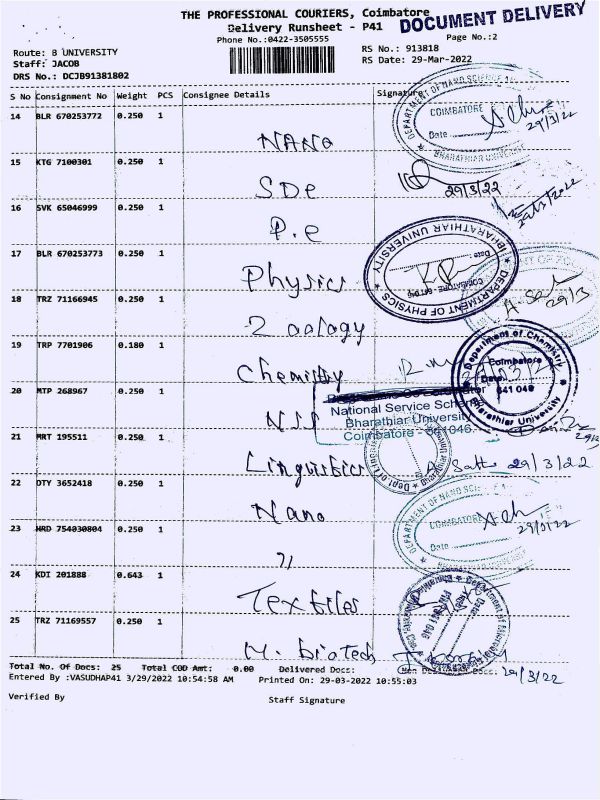 THE PROFESSIONAL COURIERS, Coimbatore
DOCUMENT DELIVERY
Delivery Runsheet - P41
Phone No.:0422-3505555
Page No.:2
Route: B UNIVERSITY
RS No.: 913818
Staff: JACOB
RS Date: 29-Mar-2022
DRS No.: DCJB91381802
S No Consignment No Weight PCS Consignee Details Signature
14 BLR 670253772 0.250 1
NANO
DEPARTMENT OF NANO SCIENCE
COIMBATORE
Date
BHARATHIAR UNIVERSITY
29/3/22
15 KTG 7100301 0.250 1
SDE
29/3/22
16 SVK 65046999 0.250 1
P.e
29/3/2022
17 BLR 670253773 0.250 1
Physics
BHARATHIAR UNIVERSITY
DEPARTMENT OF PHYSICS
Date
COIMBATORE
18 TRZ 71166945 0.250 1
Zoology
29/3
19 TRP 7701906 0.180 1
Chemistry
Department of Chemistry
Coimbatore
Date
641 046
Bharathiar University
20 MTP 268967 0.250 1
NSS
National Service Scheme
Bharathiar University
Coimbatore - 641046
21 MRT 195511 0.250 1
Linguistics
29/3/22
22 DTY 3652418 0.250 1
Nano
DEPARTMENT OF NANO SCIE
COIMBATORE
Date
29/3/22
23 HRD 754030804 0.250 1
"
24 KDI 201888 0.643 1
Textiles
25 TRZ 71169557 0.250 1
M. biotech
29/3/22
Total No. Of Docs: 25 Total COD Amt: 0.00 Delivered Docs: Non Delivered Docs:
Entered By :VASUDHAP41 3/29/2022 10:54:58 AM Printed On: 29-03-2022 10:55:03
Verified By Staff Signature